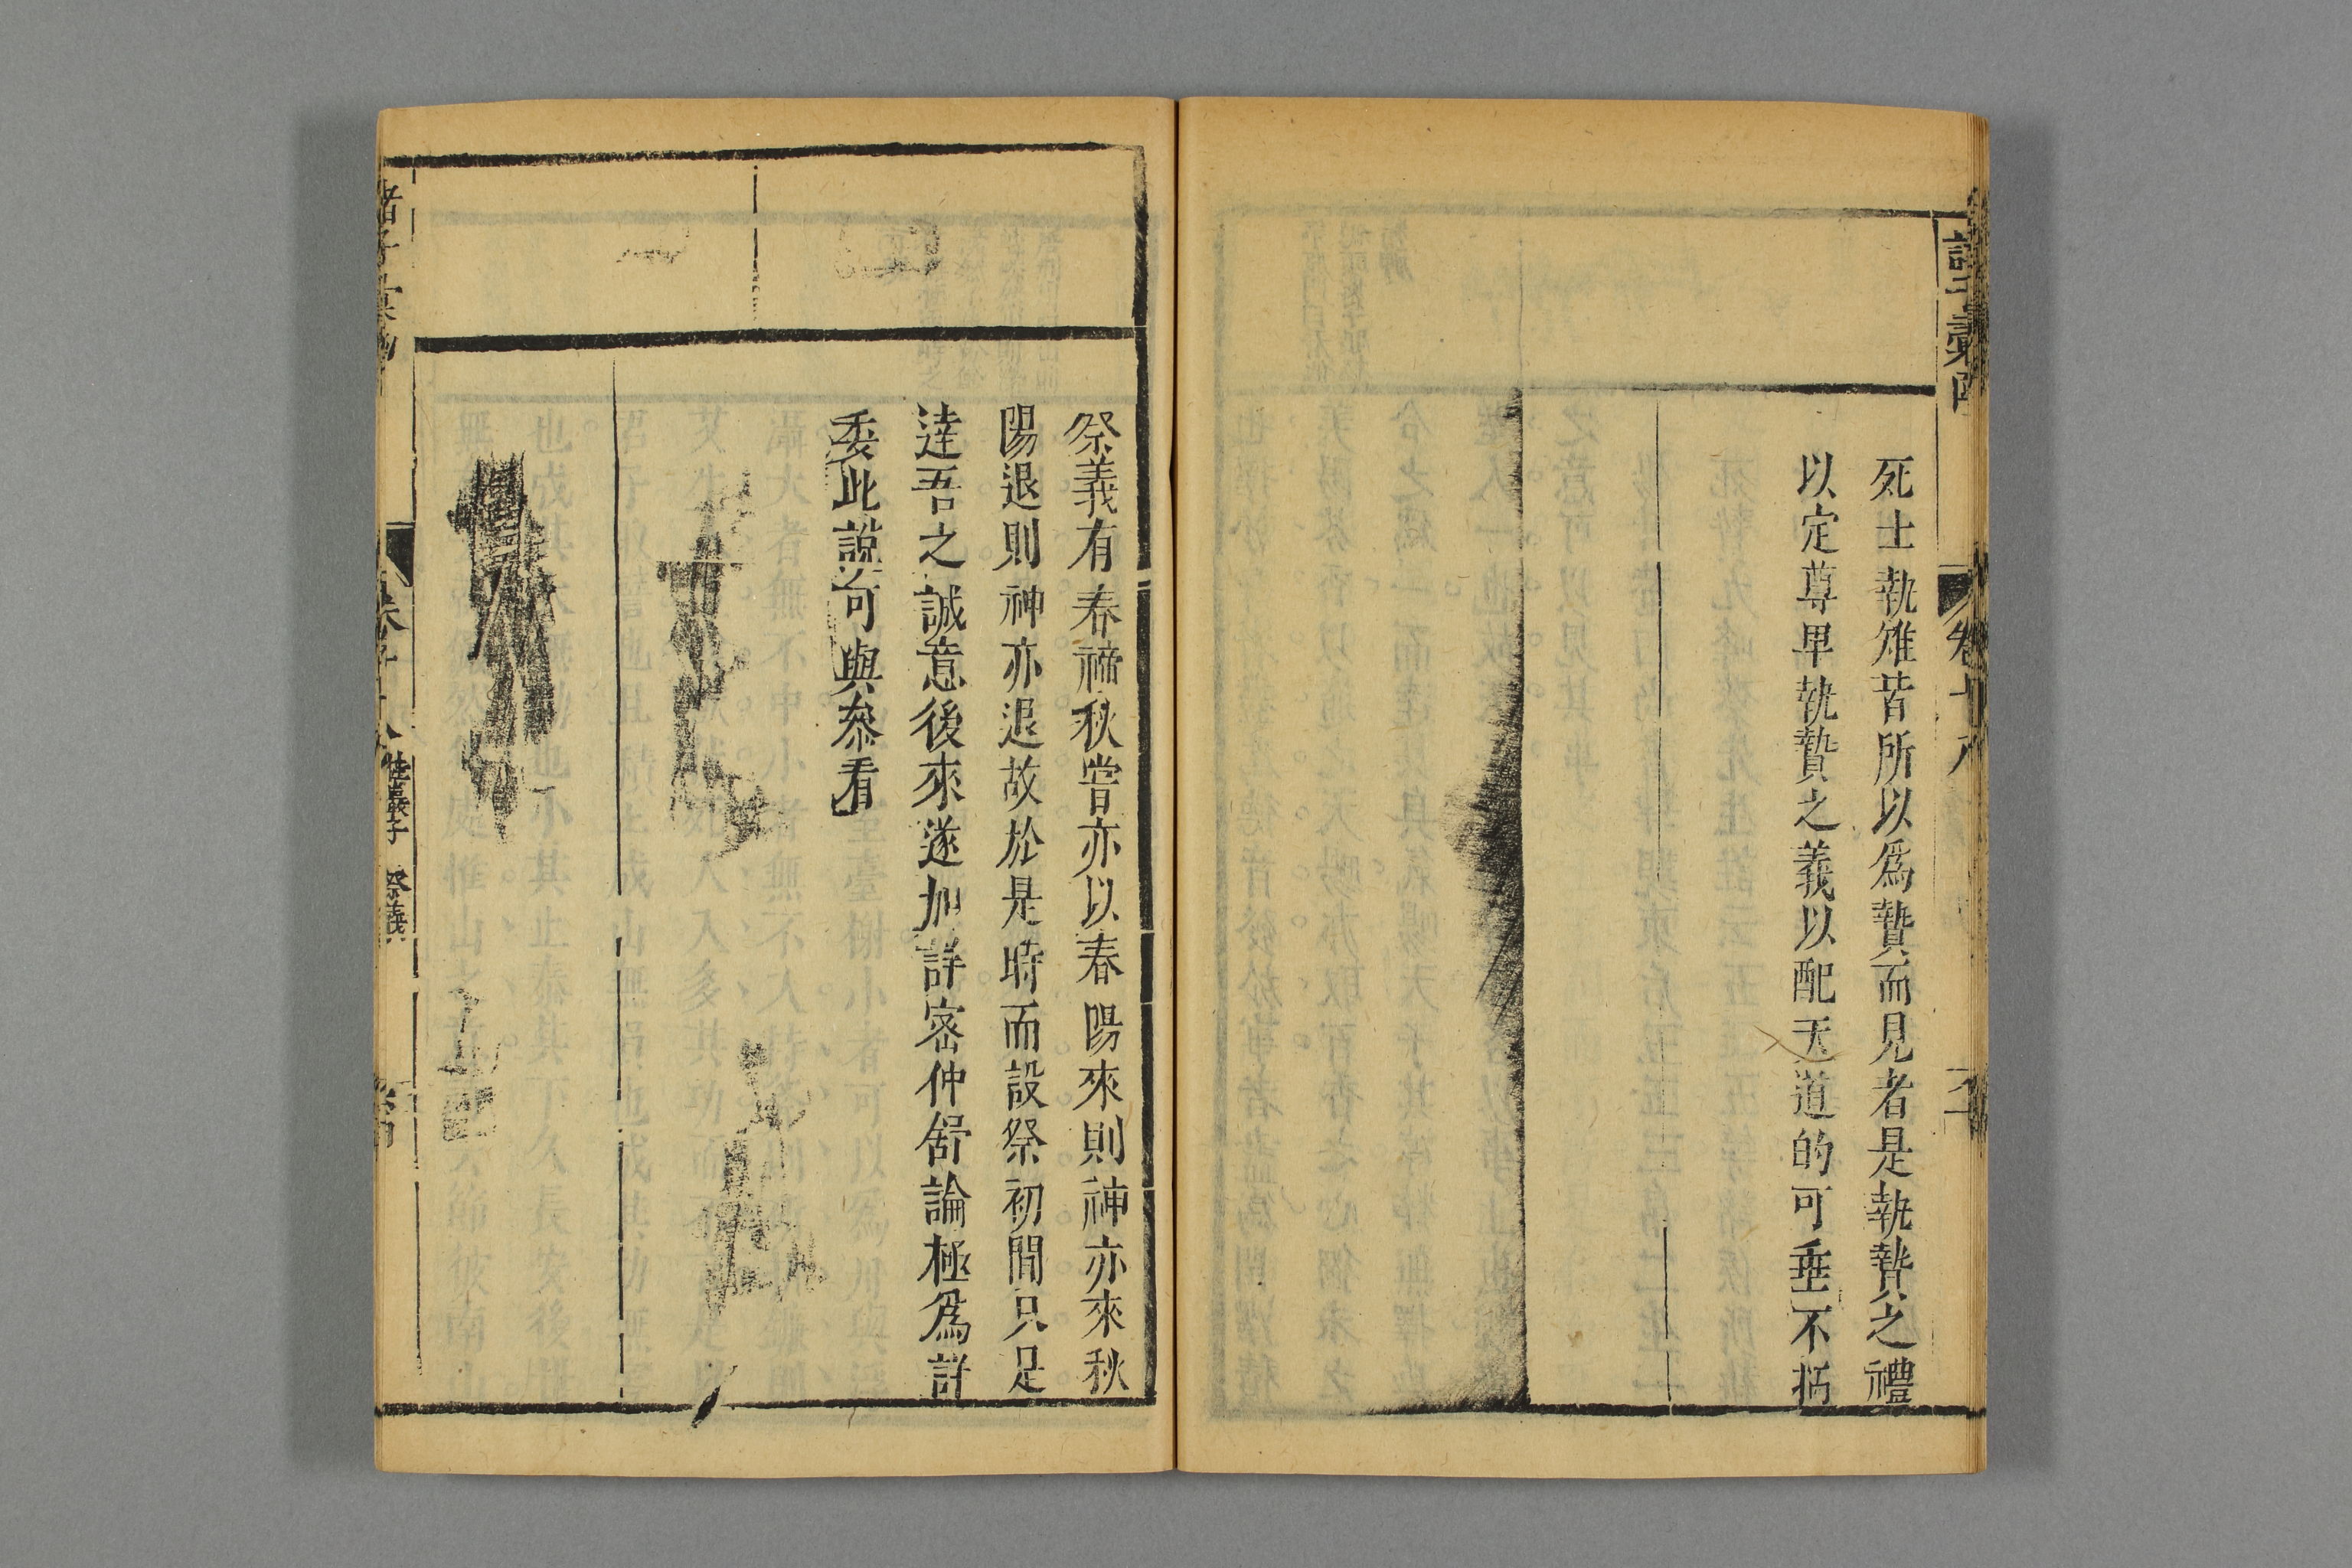 死士執雉皆所以爲贄而見者是執贄之禮
以定尊卑執贄之義以配天道的可垂不朽
卷十八
祭義有春禘秋嘗亦以春陽來則神亦來秋
陽退則神亦退故於是時而設祭初間只足
達吾之誠意後來遂加詳密仲舒論極爲詳
委此說可與叅看
桂巖子 祭義